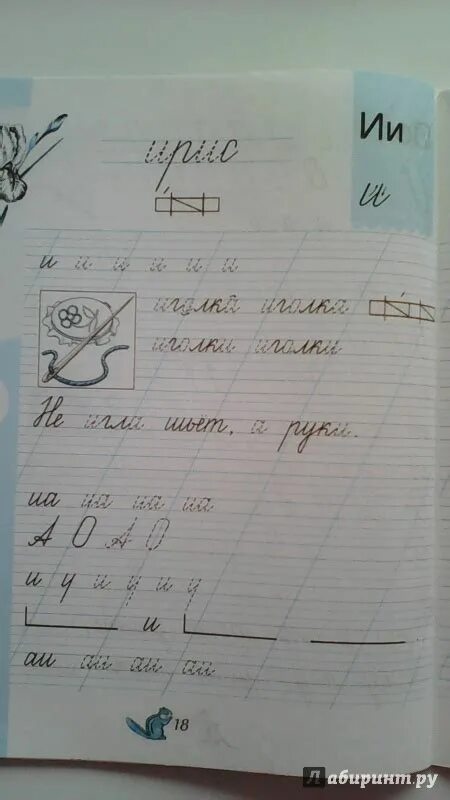 Ии
ирис
и
и и и и и и
иголка иголка
иголки иголки
Не игла шьет, а руки.
иа иа иа иа
А О А О
и у и у и у
и
аи аи аи аи
18
Лабиринт.ру